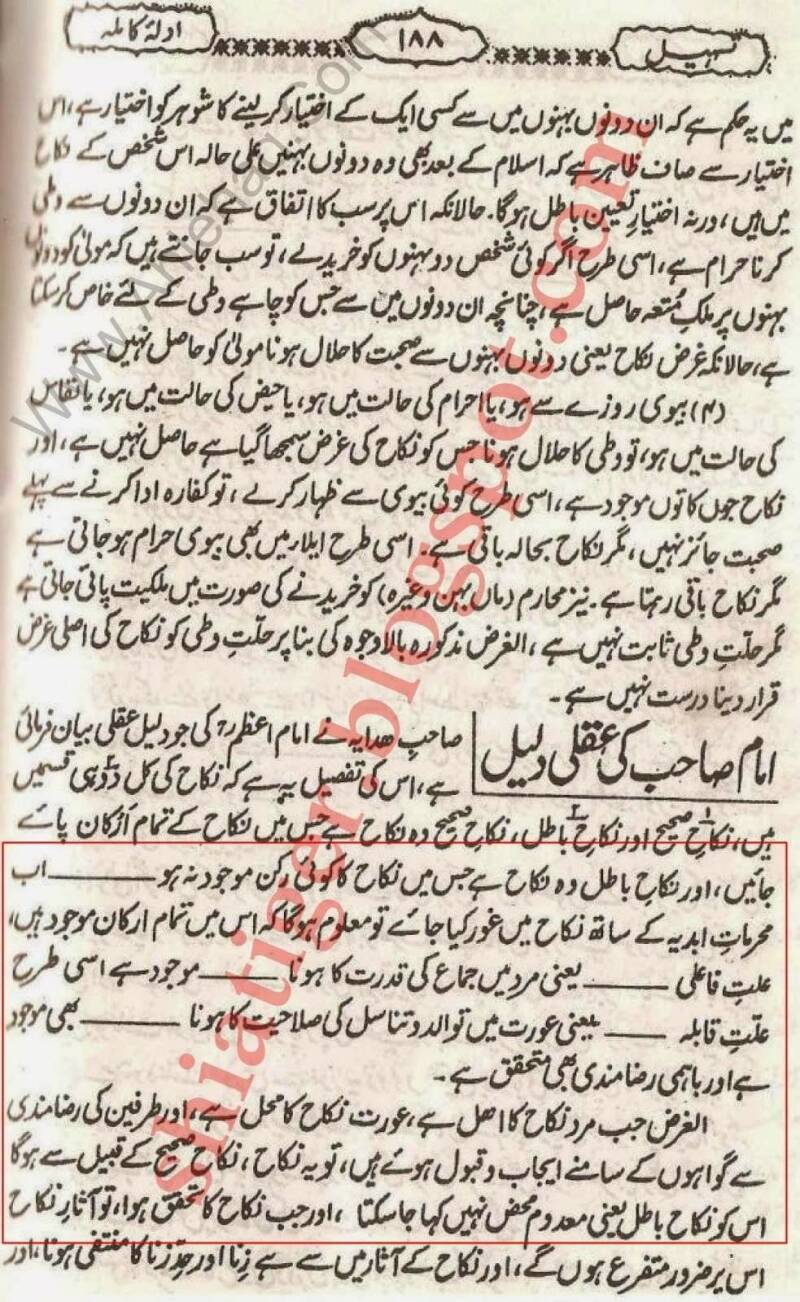 تسہیل ۱۸۸ ادلۂ کاملہ
میں یہ حکم ہے کہ ان دونوں بہنوں میں سے کسی ایک کے اختیار کر لینے کا شوہر کو اختیار ہے، اس
اختیار سے صاف ظاہر ہے کہ اسلام کے بعد بھی وہ دونوں بہنیں علی حالہ اس شخص کے نکاح
میں ہیں، ورنہ اختیارِ تعیین باطل ہوگا۔ حالانکہ اس پر سب کا اتفاق ہے کہ ان دونوں سے وطی
کرنا حرام ہے، اسی طرح اگر کوئی شخص دو بہنوں کو خرید لے، تو سب جانتے ہیں کہ مولیٰ کو دونوں
بہنوں پر ملکِ مُتعہ حاصل ہے، چنانچہ ان دونوں میں سے جس کو چاہے وطی کے لئے خاص کر سکتا
ہے، حالانکہ غرض نکاح یعنی دونوں بہنوں سے صحبت کا حلال ہونا مولیٰ کو حاصل نہیں ہے۔
(۴) بیوی روزے سے ہو، یا احرام کی حالت میں ہو، یا حیض کی حالت میں ہو، یا نفاس
کی حالت میں ہو، تو وطی کا حلال ہونا جس کو نکاح کی غرض سمجھا گیا ہے حاصل نہیں ہے، اور
نکاح جوں کا توں موجود ہے، اسی طرح کوئی بیوی سے ظہار کرلے، تو کفارہ ادا کرنے سے پہلے
صحبت جائز نہیں، مگر نکاح بحالہ باقی ہے۔ اسی طرح ایلاء میں بھی بیوی حرام ہو جاتی ہے
مگر نکاح باقی رہتا ہے۔ نیز محارم (ماں بہن وغیرہ) کو خریدنے کی صورت میں ملکیت پائی جاتی ہے
مگر حلّتِ وطی ثابت نہیں ہے، الغرض مذکورہ بالا وجوہ کی بنا پر حلّتِ وطی کو نکاح کی اصلی غرض
قرار دینا درست نہیں ہے۔
امام صاحب کی عقلی دلیل
صاحبِ ھدایہ نے امام اعظم رح کی جو دلیل عقلی بیان فرمائی
ہے، اس کی تفصیل یہ ہے کہ نکاح کی کل دو ہی قسمیں
ہیں، نکاحِ صحیح اور نکاحِ باطل، نکاحِ صحیح وہ نکاح ہے جس میں نکاح کے تمام اَرکان پائے
جائیں، اور نکاحِ باطل وہ نکاح ہے جس میں نکاح کا کوئی رکن موجود نہ ہو ——— اب
محرماتِ ابدیہ کے ساتھ نکاح میں غور کیا جائے تو معلوم ہوگا کہ اس میں تمام ارکان موجود ہیں،
علتِ فاعلی ——— یعنی مرد میں جماع کی قدرت کا ہونا ——— موجود ہے اسی طرح
علّتِ قابلہ ——— یعنی عورت میں توالد و تناسل کی صلاحیت کا ہونا ——— بھی موجود
ہے اور باہمی رضامندی بھی متحقق ہے۔
الغرض جب مرد نکاح کا اھل ہے، عورت نکاح کا محل ہے، اور طرفین کی رضامندی
سے گواہوں کے سامنے ایجاب و قبول ہوئے ہیں، تو یہ نکاح، نکاحِ صحیح کے قبیل سے ہوگا
اس کو نکاحِ باطل یعنی معدومِ محض نہیں کہا جا سکتا، اور جب نکاح کا تحقق ہوا، تو آثارِ نکاح
اس پر ضرور متفرع ہوں گے، اور نکاح کے آثار میں سے ہے زِنا اور حدِّ زنا کا منتفی ہونا، اور
shiatiger.blogspot.com